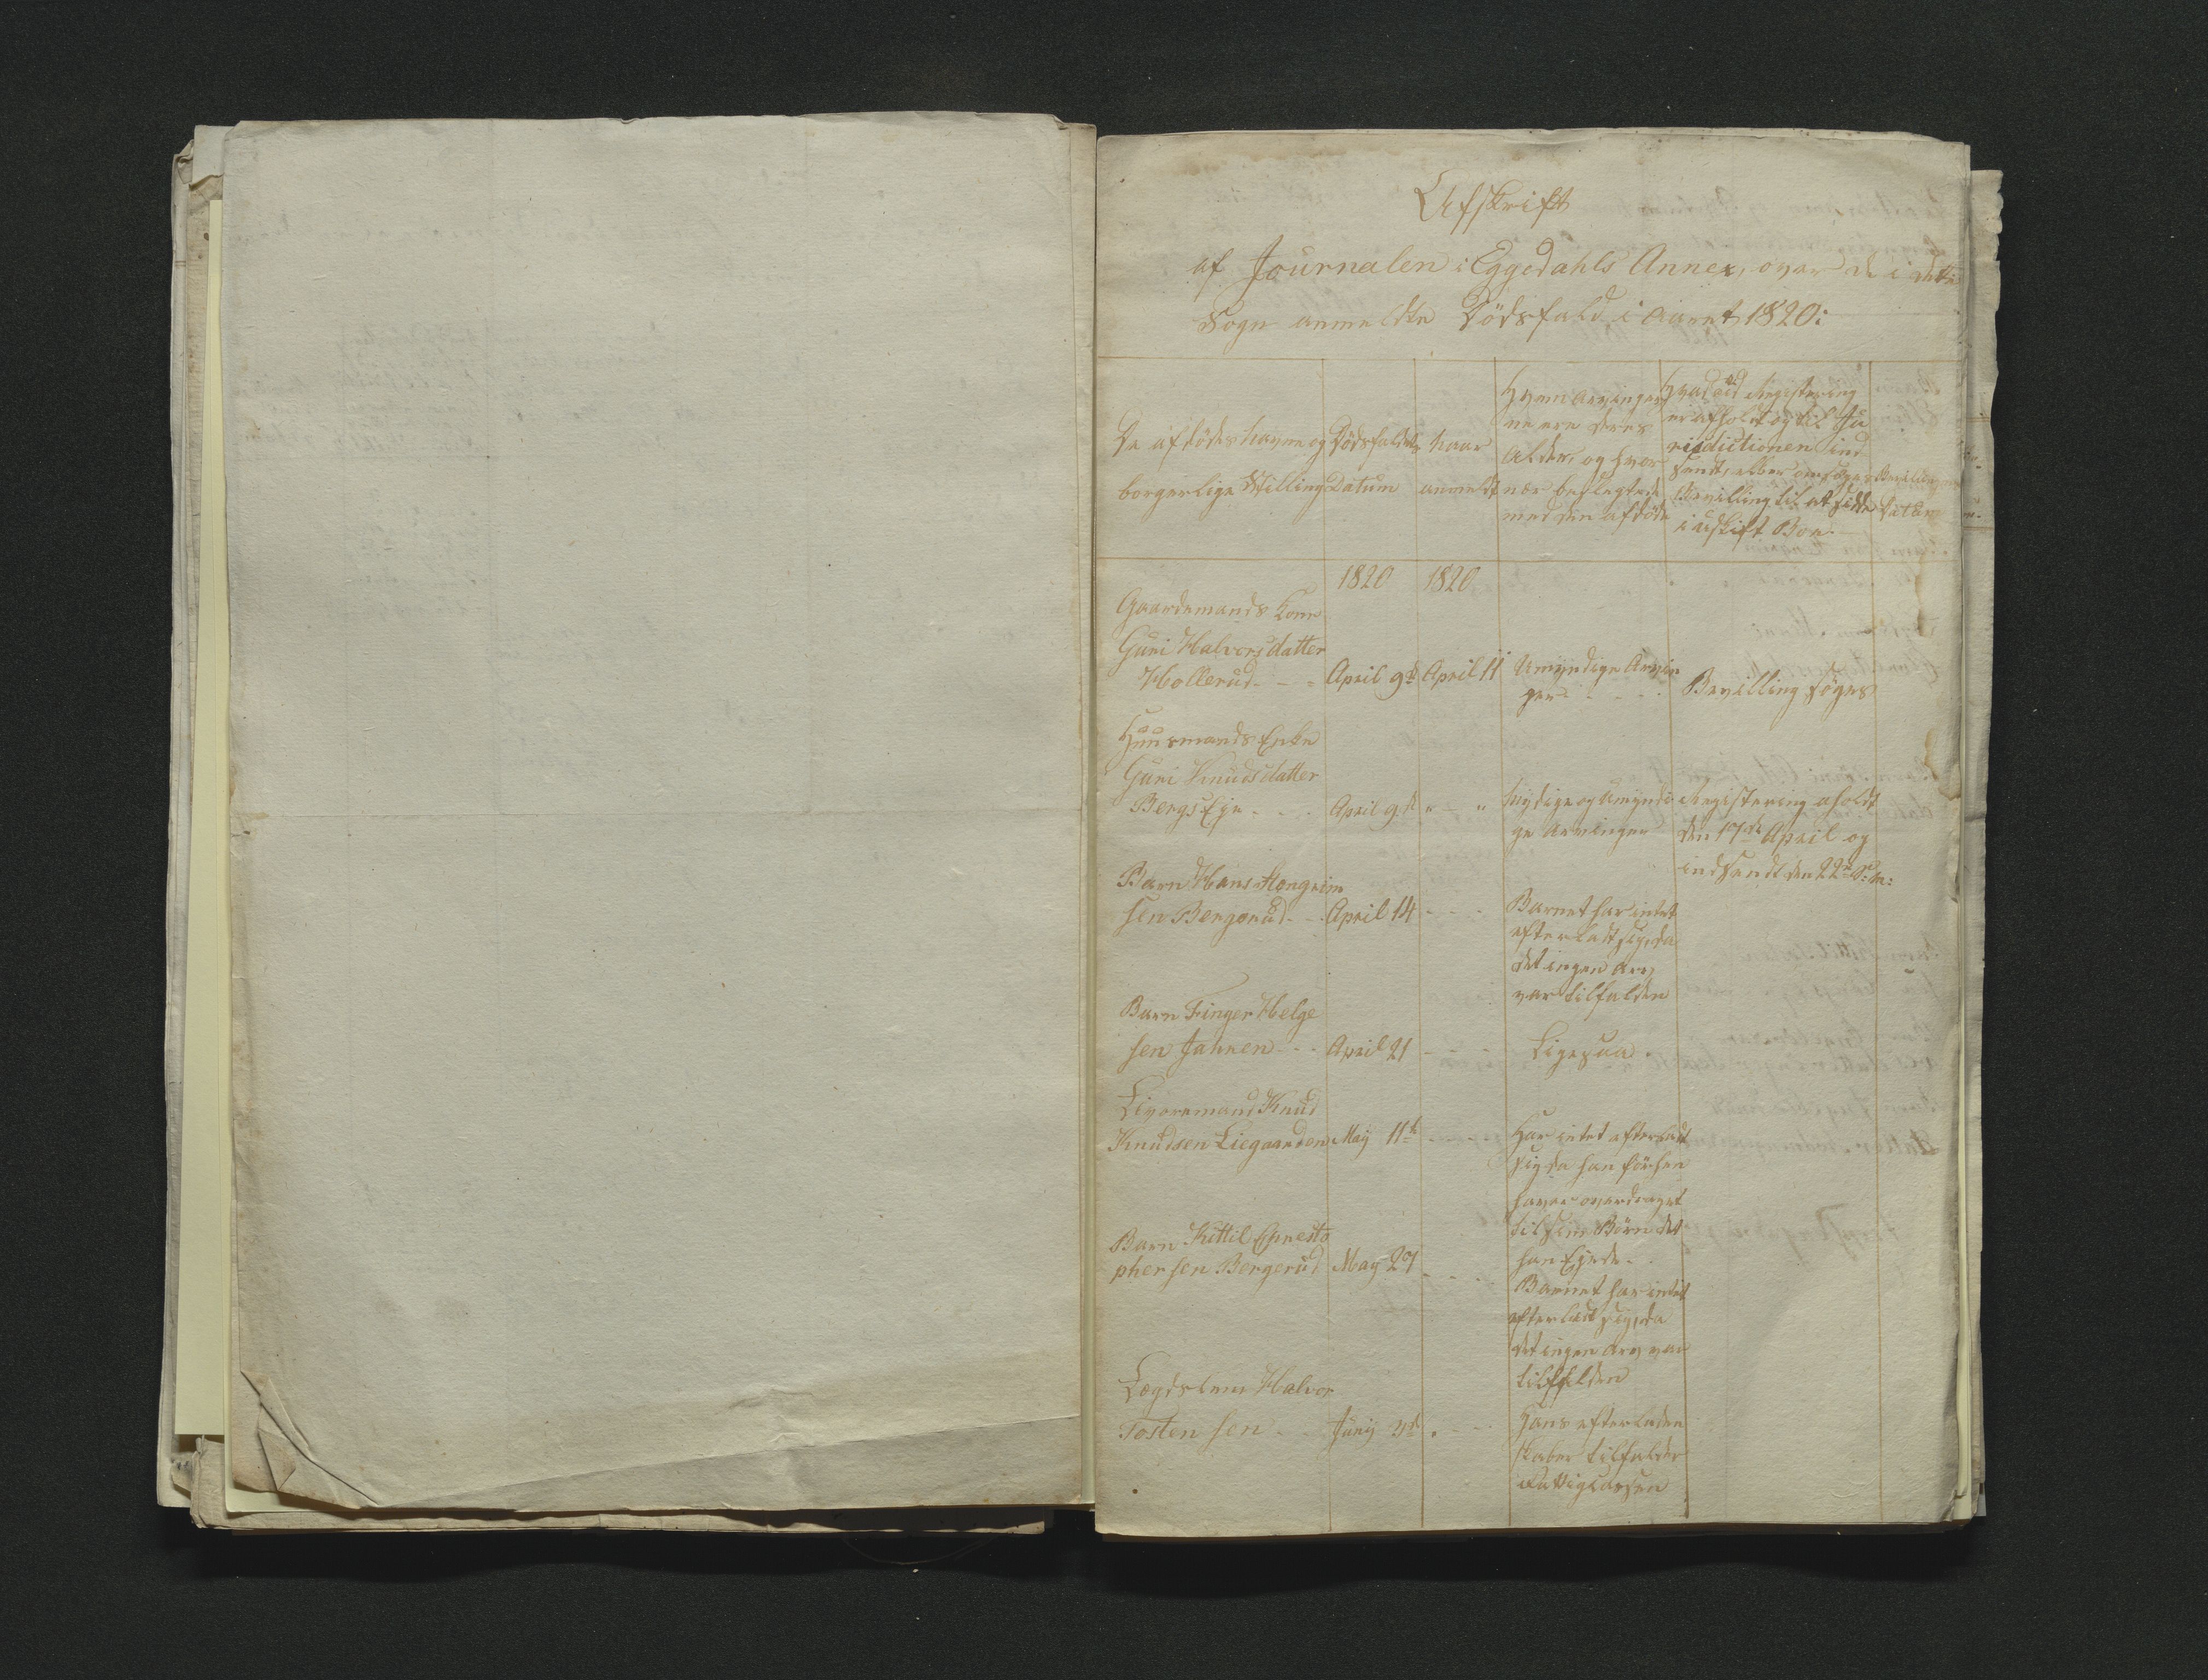 Afskrift
af Journalen i Eggedahls Annex, over de i dette
Sogn anmeldte Dödsfald i Aaret 1820:
De afdödes Navne og
borgerlige Stilling
Dödsfaldets
Datum
Naar
anmeldt
Hvem Arvinger
ne ere deres
Alder, og hvor
nær beslegtede
med den afdöde
Hvad ved Registering
er afholdt og til Ju
risdictionen ind
sendt, eller om söges
Bevilling til at sidde
i uskift Boe.
Bevillingens
Datum
1820 1820
Gaardmands Kone
Guri Halvorsdatter
Hollerud - - - April 9d April 11 Umyndige Arvin
ger - - - - Bevilling söges
Huusmands Enke
Guri Knudsdatter
Bergs Eje - - - April 9d " - " Myndige og Umyndi
ge Arvinger
Registering aholdt
den 17de April og
indsendt den 22d S: M:
Barn Hans Hengrim
sen Bergerud - - April 14 - - - Barnet har intet
efterladt sig, da
det ingen Arv
var tilfalden
Barn Finger Helge
sen Jahren - - - April 21 - - - Ligesaa
Livöremand Knud
Knudsen Liegaarden May 11te - - - Har intet efterladt
sig da han forhen
haver overdraget
til sine Börn det
han Ejede.
Barn Kittil Chresto
phersen Bergerud May 27 - - - Barnet har intet
efterladt sig, da
det ingen Arv var
tilfalden
Lægdslem Halvor
Tostensen - - Juny 4d - - - Hans efterladen
skaber tilfalder
Fattigcassen